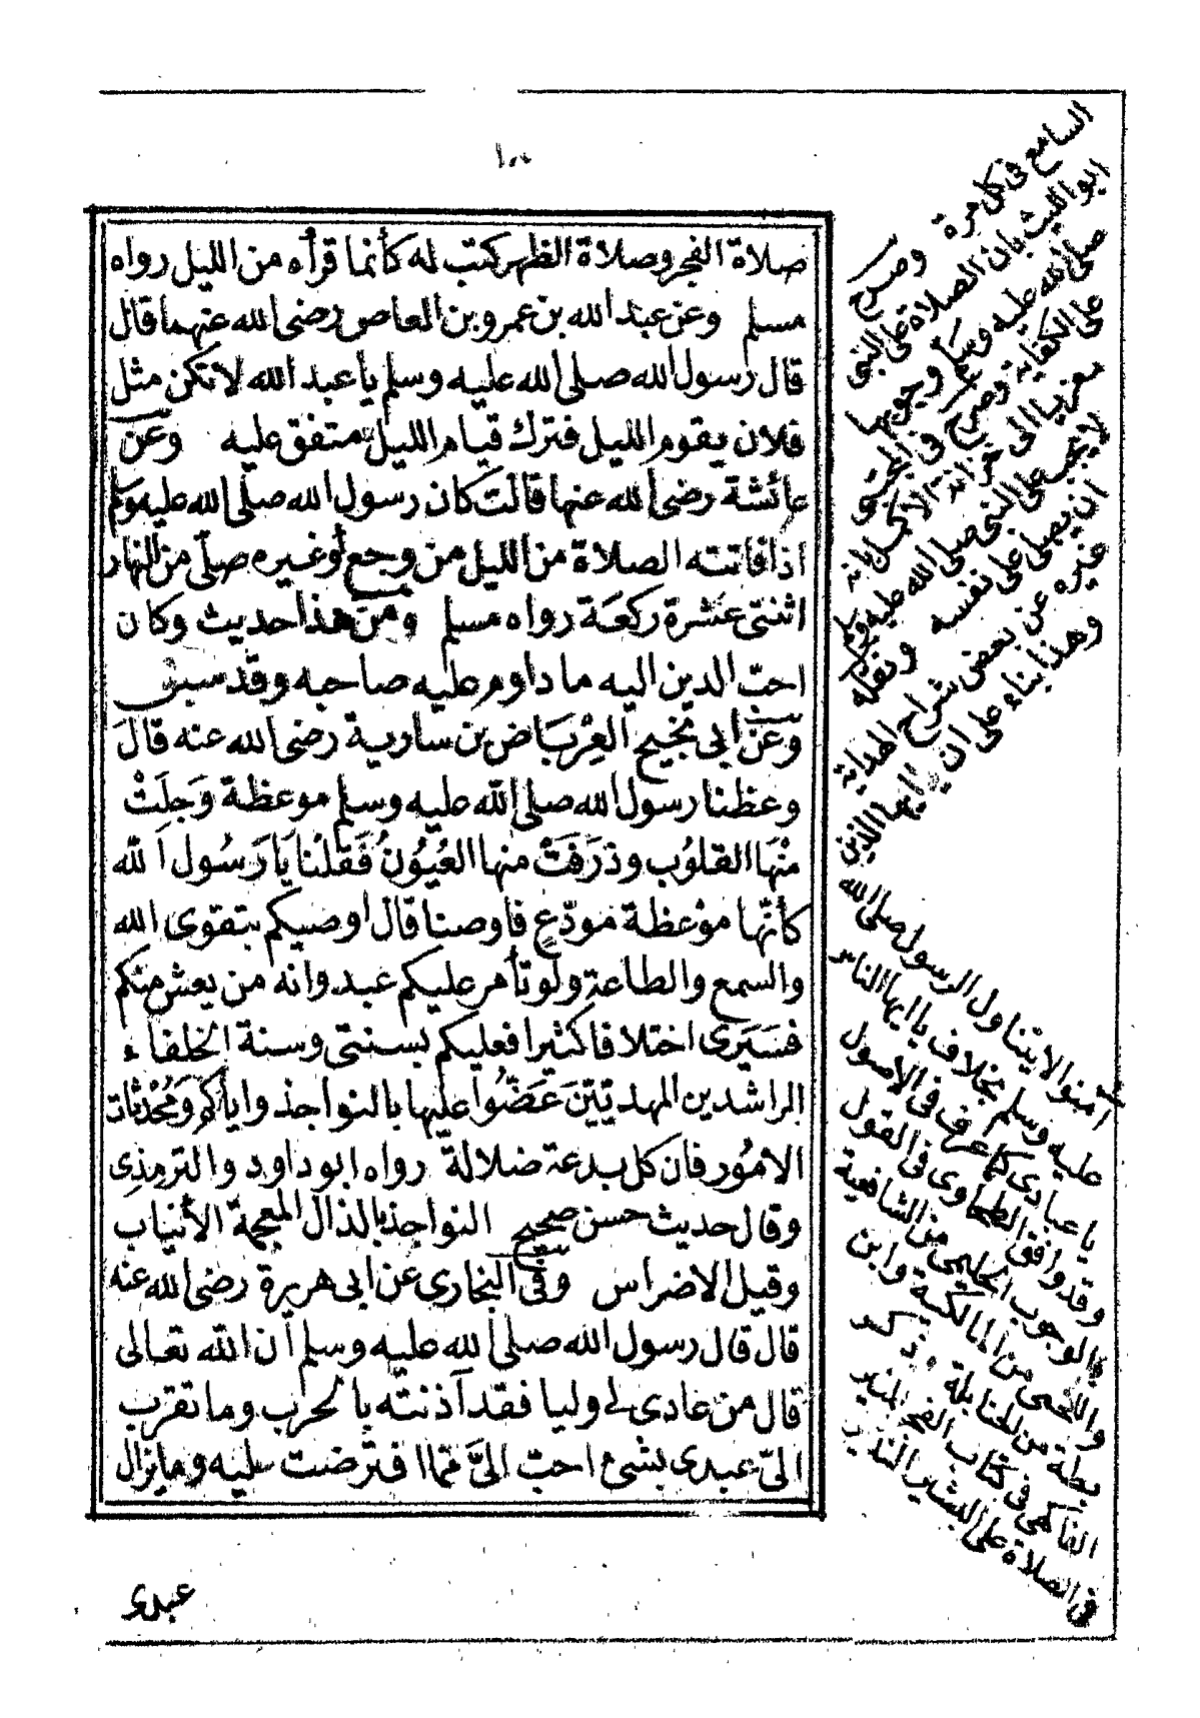 ١٠٠
صلاة الفجر وصلاة الظهر كتب له كأنما قرأه من الليل رواه
مسلم وعن عبد الله بن عمرو بن العاص رضى الله عنهما قال
قال رسول الله صلى الله عليه وسلم يا عبد الله لا تكن مثل
فلان يقوم الليل فترك قيام الليل متفق عليه وعن
عائشة رضى الله عنها قالت كان رسول الله صلى الله عليه وسلم
اذا فاتته الصلاة من الليل من وجع أو غيره صلى من النهار
اثنتى عشرة ركعة رواه مسلم ومن هذا حديث وكان
احبّ الدين اليه ما داوم عليه صاحبه وقد سبق
وعن ابى نجيح العِرْبَاض بن سارية رضى الله عنه قالَ
وعظنا رسول الله صلى الله عليه وسلم موعظة وَجِلَتْ
مِنْهَا القلوُب وذرَفَتْ منها العُيُونُ فَقلْنا يَا رَسُول الله
كأنّها موْعظة مودّعٍ فاوصنا قال اوصيكم بتقوى الله
والسمع والطاعة ولو تأمر عليكم عبد وانه من يعش منكم
فسَيَرى اختلافا كثيرا فعليكم بسنتى وسنة الخلفاء
الراشدين المهديّينَ عَضّوُا عليها بالنواجذ واياكم وَمُحْدثات
الامُور فان كل بدعة ضلالة رواه ابو داود والترمِذِى
وقال حديث حسن صحيح النواجذ بالذال المعجمة الأنياب
وقيل الاضراس وفى البخارى عن ابى هريرة رضى الله عنه
قال قال رسول الله صلى الله عليه وسلم ان الله تعالى
قال من عادى لى وليا فقد آذنته بالحرب وما تقرب
الىّ عبدى بشئ احبّ الىَّ ممّا افترضت عليه وما يزال
عبدى
السامع فى كل مرة وصرح
ابو الليث بان الصلاة على النبى
صلى الله عليه وسلم وجوبها
على الكفاية وصرح فى المجتبى
معزيا الى خزانة الاكمل انه
لا يجب على النبى صلى الله عليه وسلم
ان يصلى على نفسه ونقله
غيره عن بعض شراح الهداية
وهذا بناء على ان يا ايها الذين
امنوا لا يتناول الرسول صلى الله
عليه وسلم بخلاف يا ايها الناس
يا عبادى كما عرف فى الاصول
وقد وافق الطحاوى فى القول
بالوجوب الحليمى من الشافعية
واللخمى من المالكية وابن
بطة من الحنابلة ذكره
الفاكهى فى كتاب الفجر المنير
فى الصلاة على البشير النذير